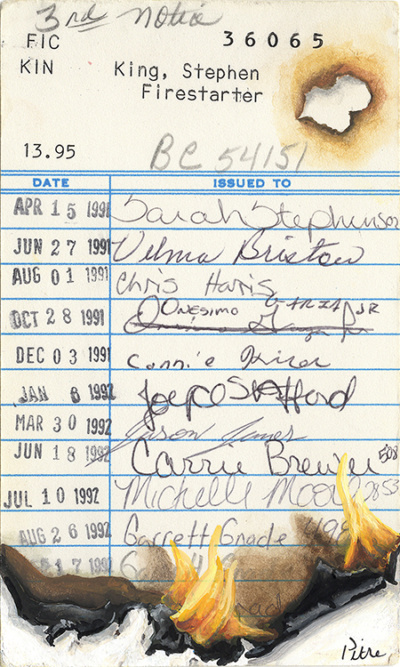 3rd notice
FIC 36065
KIN King, Stephen
Firestarter
13.95 BC 54151
DATE ISSUED TO
APR 15 1991 Sarah Stephenson
JUN 27 1991 Velma Bristow
AUG 01 1991 Chris Harris
OCT 28 1991 Onesimo Garza Jr
DEC 03 1991 Connie
JAN 6 1992 Joyce Stafford
MAR 30 1992 Jason James
JUN 18 1992 Carrie Brewer 508
JUL 10 1992 Michelle Moore 2853
AUG 26 1992 Garrett Gnade 498
17 1992
Pitre